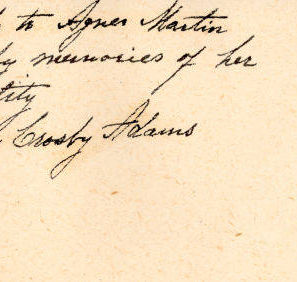 to Agnes Martin
memories of her
Crosby Adams